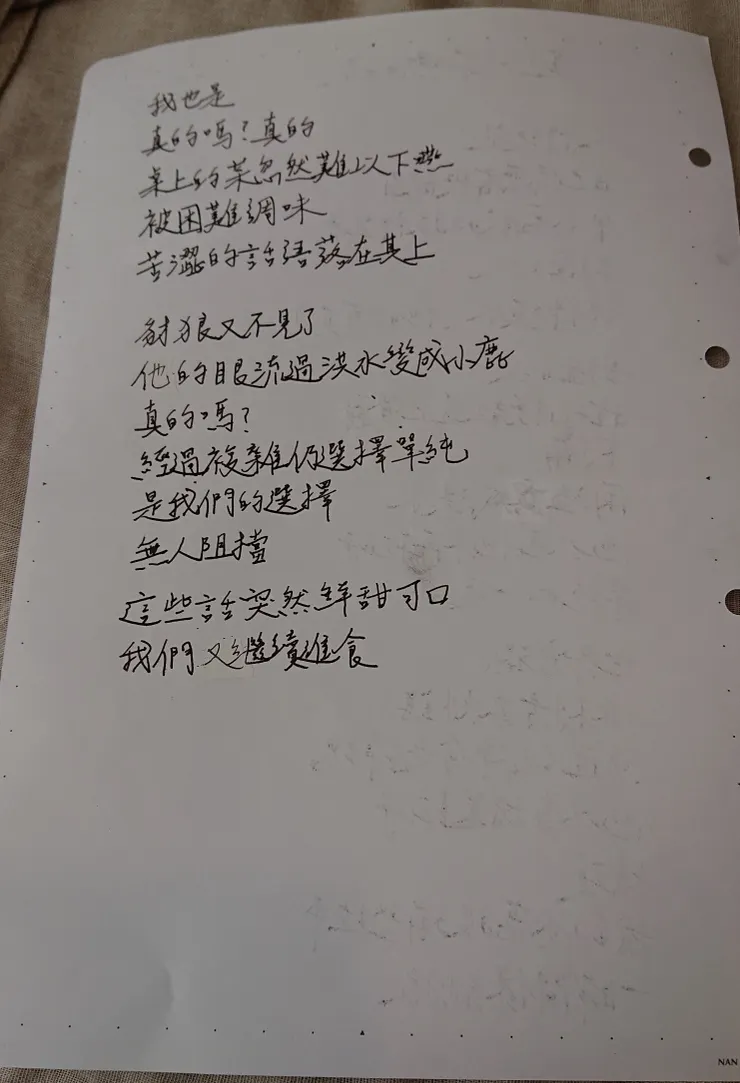 我也是
真的嗎？真的
桌上的菜忽然難以下嚥
被困難調味
苦澀的話語落在其上
豺狼又不見了
他的眼流過洪水變成小鹿
真的嗎？
經過複雜你選擇單純
是我們的選擇
無人阻擋
這些話突然鮮甜可口
我們又繼續進食
NAN